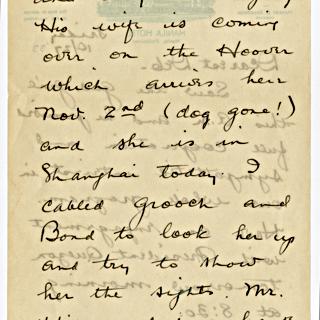 His wife is coming
over on the Hoover
which arrives here
Nov. 2nd (dog gone!)
and she is in
Shanghai today. I
cabled Grooch and
Bond to look her up
and try to show
her the sights. Mr.